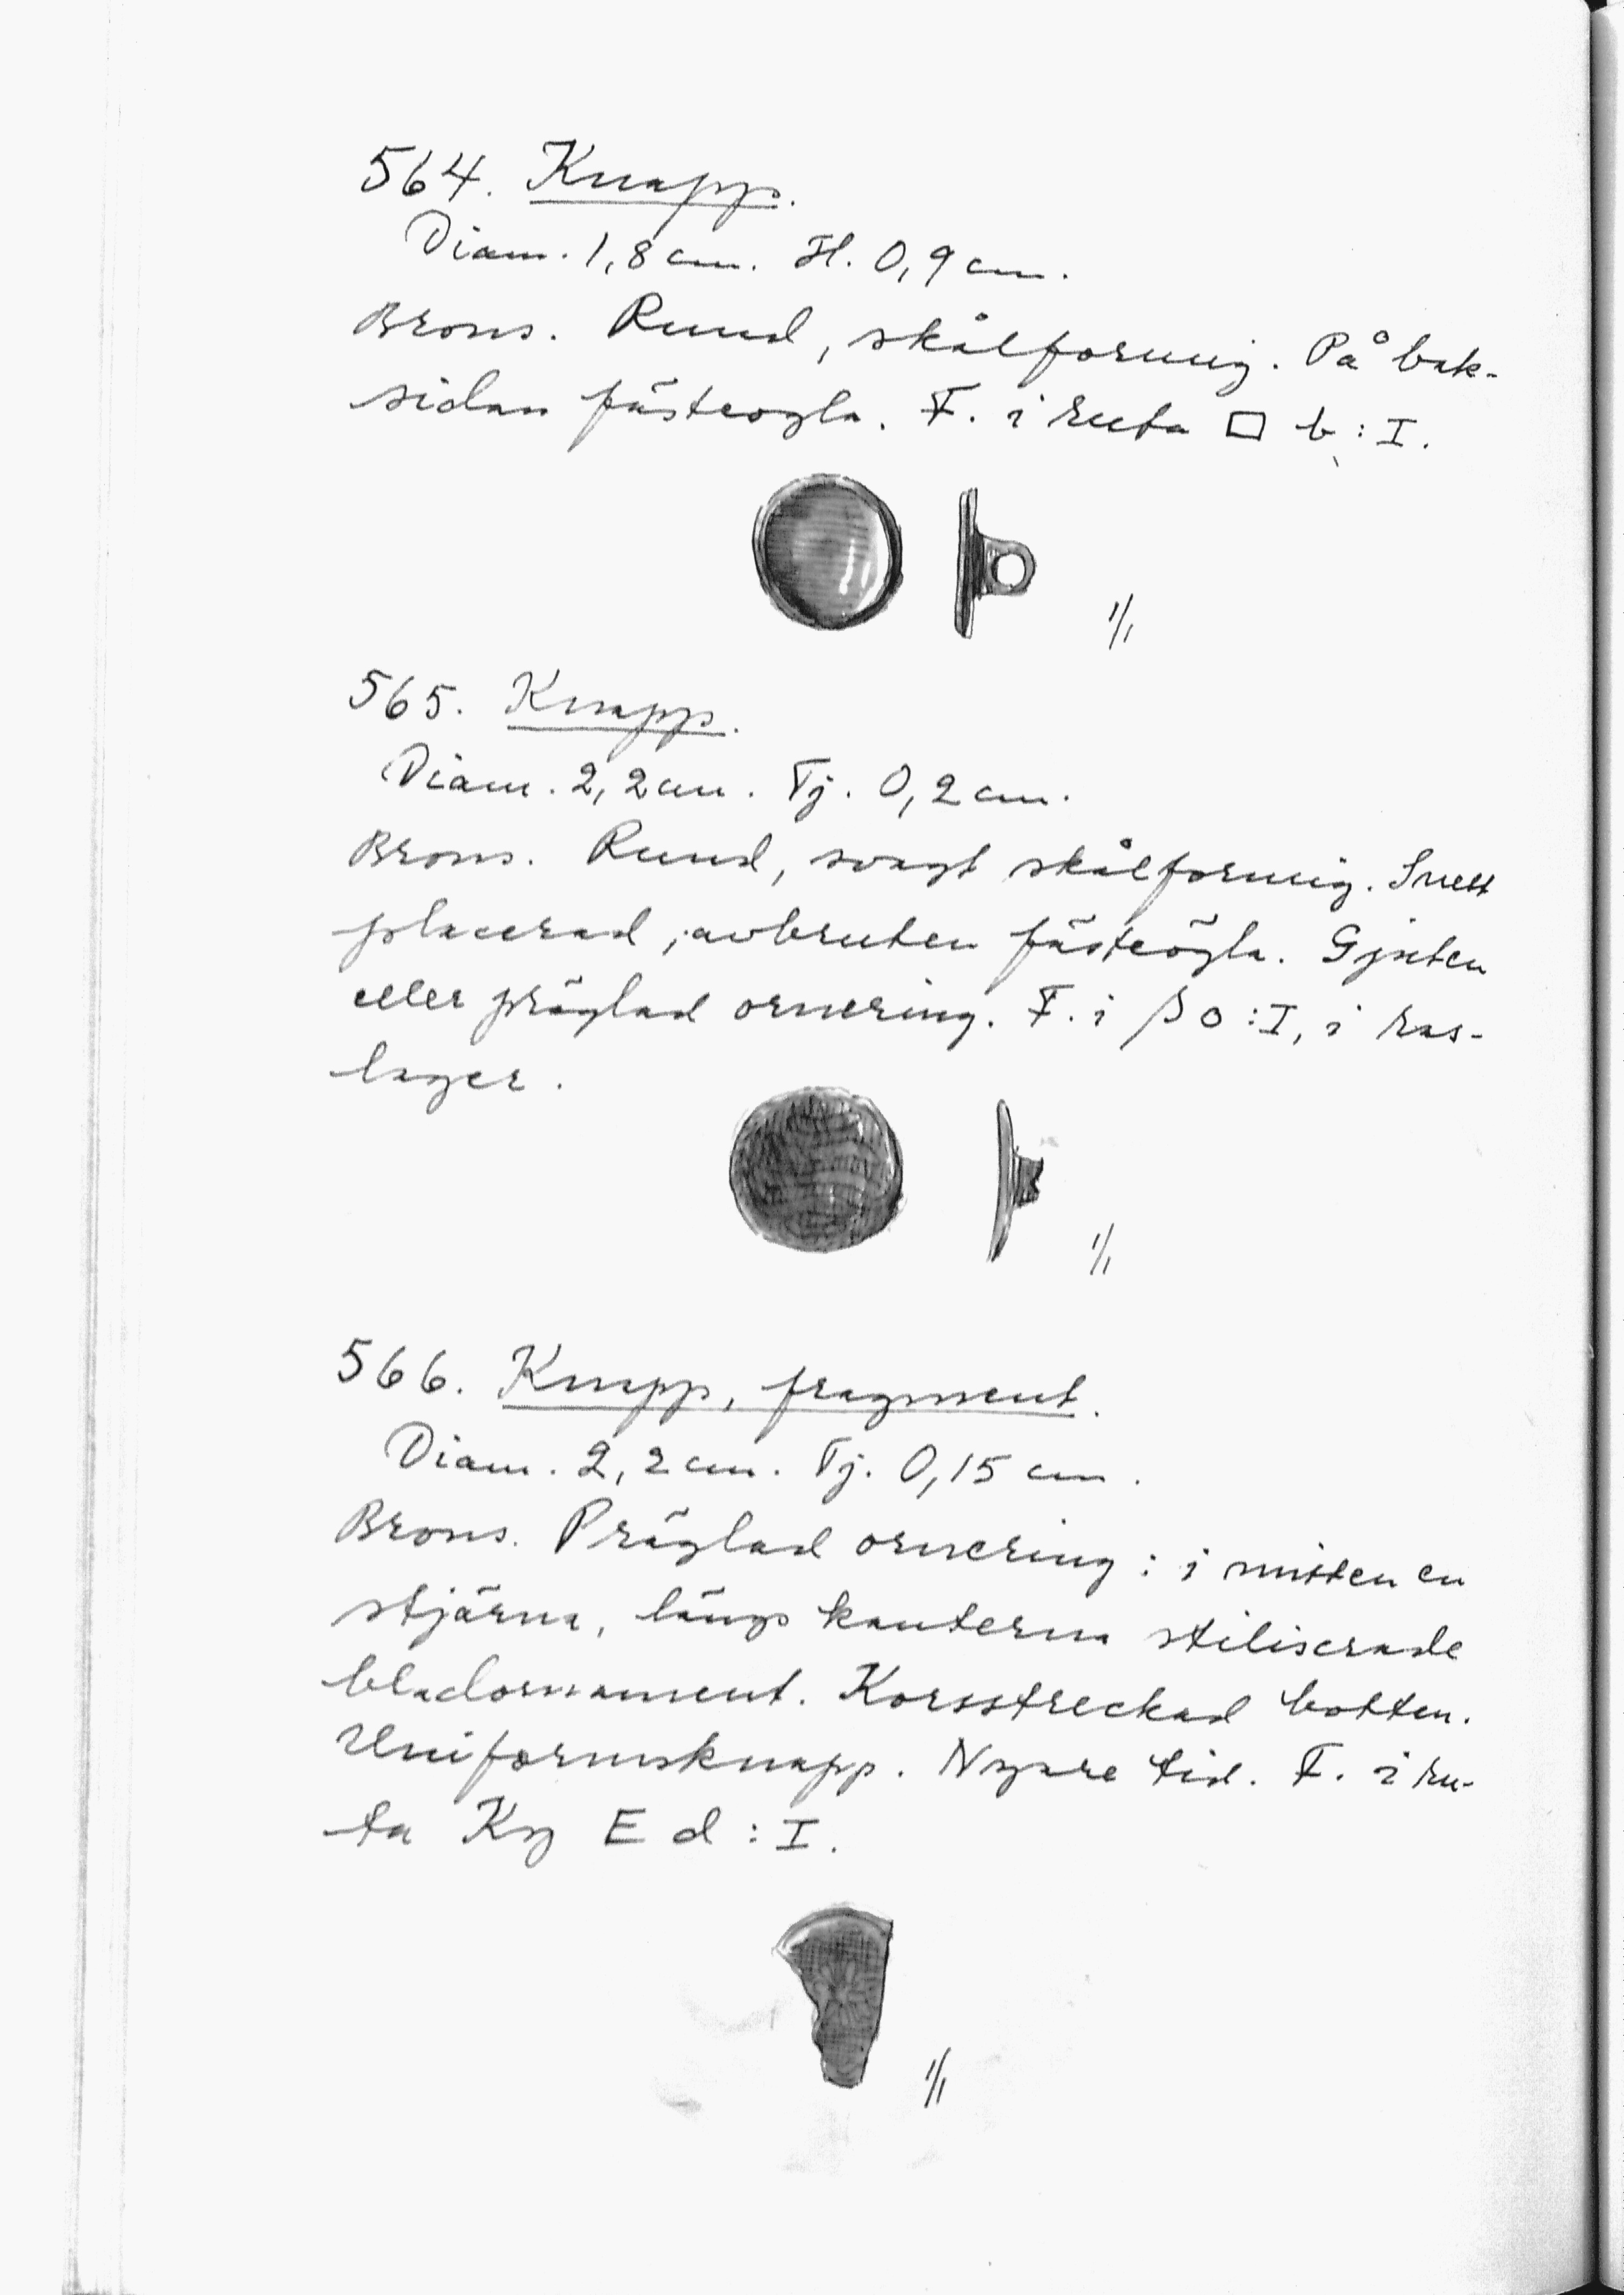 564. Knapp.
Diam. 1,8 cm. H. 0,9 cm.
Brons. Rund, skålformig. På bak-
sidan fästeogla. F. i ruta □ b:I.
1/1
565. Knapp.
Diam. 2,2 cm. Tj. 0,2 cm.
Brons. Rund, svagt skålformig. Snett
placerad, avbruten fästeögla. Gjuten
eller präglad ornering. F. i β o:I, i ras-
lager.
1/1
566. Knapp, fragment.
Diam. 2,2 cm. Tj. 0,15 cm.
Brons. Präglad ornering: i mitten en
stjärna, längs kanterna stiliserade
bladornament. Korsstreckad botten.
Uniformsknapp. Nyare tid. F. i ru-
ta Ky E d:I.
1/1